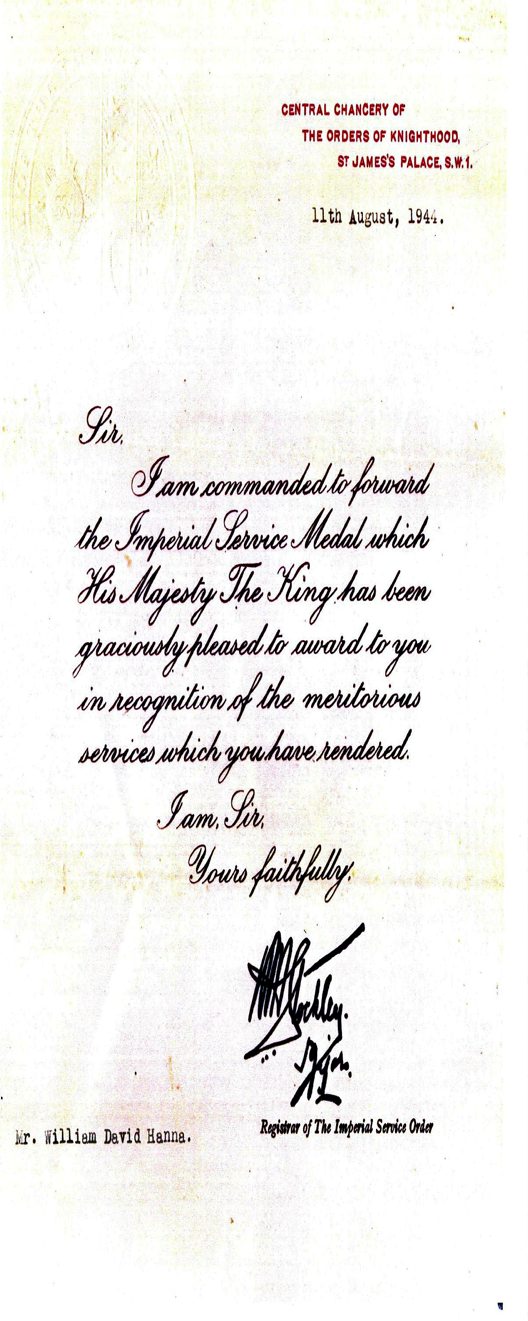 CENTRAL CHANCERY OF
THE ORDERS OF KNIGHTHOOD,
ST JAMES'S PALACE, S.W.1.
11th August, 1944.
Sir,
I am commanded to forward
the Imperial Service Medal which
His Majesty The King has been
graciously pleased to award to you
in recognition of the meritorious
services which you have rendered.
I am, Sir,
Yours faithfully,
Major.
Registrar of The Imperial Service Order
Mr. William David Hanna.